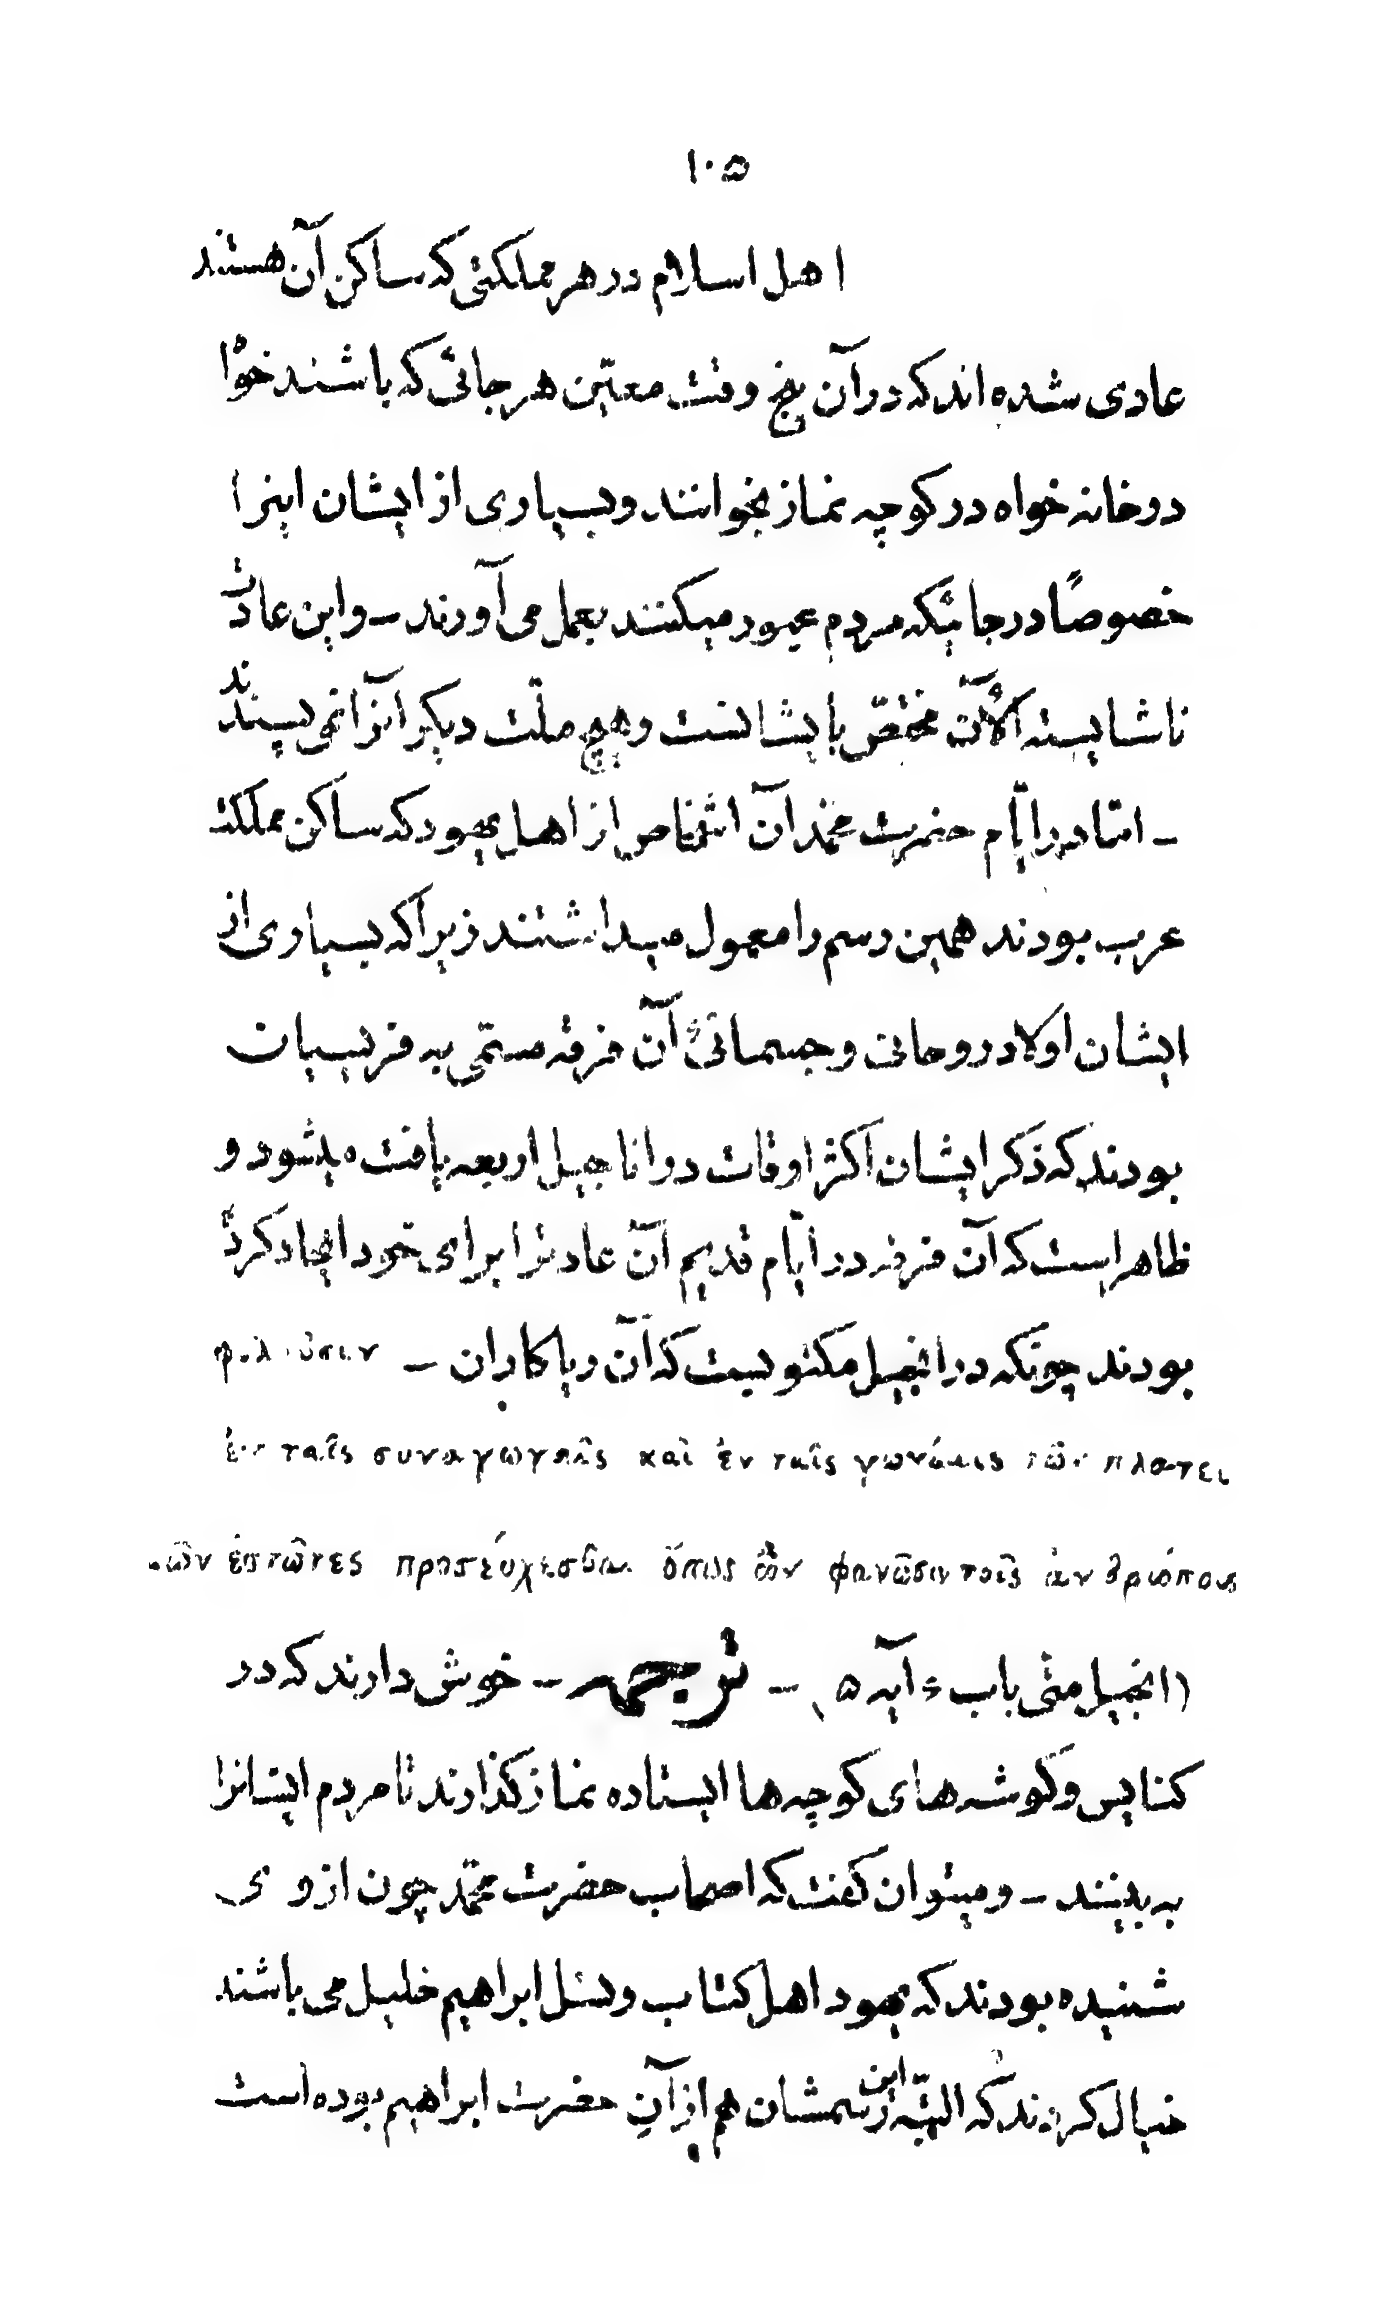 ۱۰۵
اهل اسلام در هر مملکتی که ساکن آن هستند
عادی شده اند که در آن پنج وقت معیّن هر جائی که باشند خواه
در خانه خواه در کوچه نماز بخوانند و بسیاری از ایشان اینرا
خصوصًا در جائیکه مردم عبور میکنند بعمل می آورند – و این عادت
ناشایسته الأن مختصّ بایشانست و هیچ ملّت دیگر آنرا نمی پسندند
– امّا در ایّام حضرت محمّد آن اشخاص از اهل یهود که ساکن مملکت
عرب بودند همین رسم را معمول میداشتند زیرا که بسیاری از
ایشان اولاد روحانی و جسمانیٔ آن فرقه مسمّی به فریسیان
بودند که ذکر ایشان اکثر اوقات در اناجیل اربعه یافت میشود و
ظاهر است که آن فرقه در ایّام قدیم آن عادترا برای خود ایجاد کرده
بودند چونکه در انجیل مکتوبست که آن ریاکاران – φιλοῦσιν
ἐν ταῖς συναγωγαῖς καὶ ἐν ταῖς γωνίαις τῶν πλατει
ῶν ἑστῶτες προσεύχεσθαι ὅπως ἂν φανῶσιν τοῖς ἀνθρώποις
(انجیل متّی باب ۶ آیه ۵) – ترجمه – خوش دارند که در
کنایس و گوشه های کوچه ها ایستاده نماز گذارند تا مردم ایشانرا
به بینند – و میتوان گفت که اصحاب حضرت محمّد چون از وی
شنیده بودند که یهود اهل کتاب و نسل ابراهیم خلیل می باشند
خیال کردند که البتّه این رسمشان هم از آنِ حضرت ابراهیم بوده است